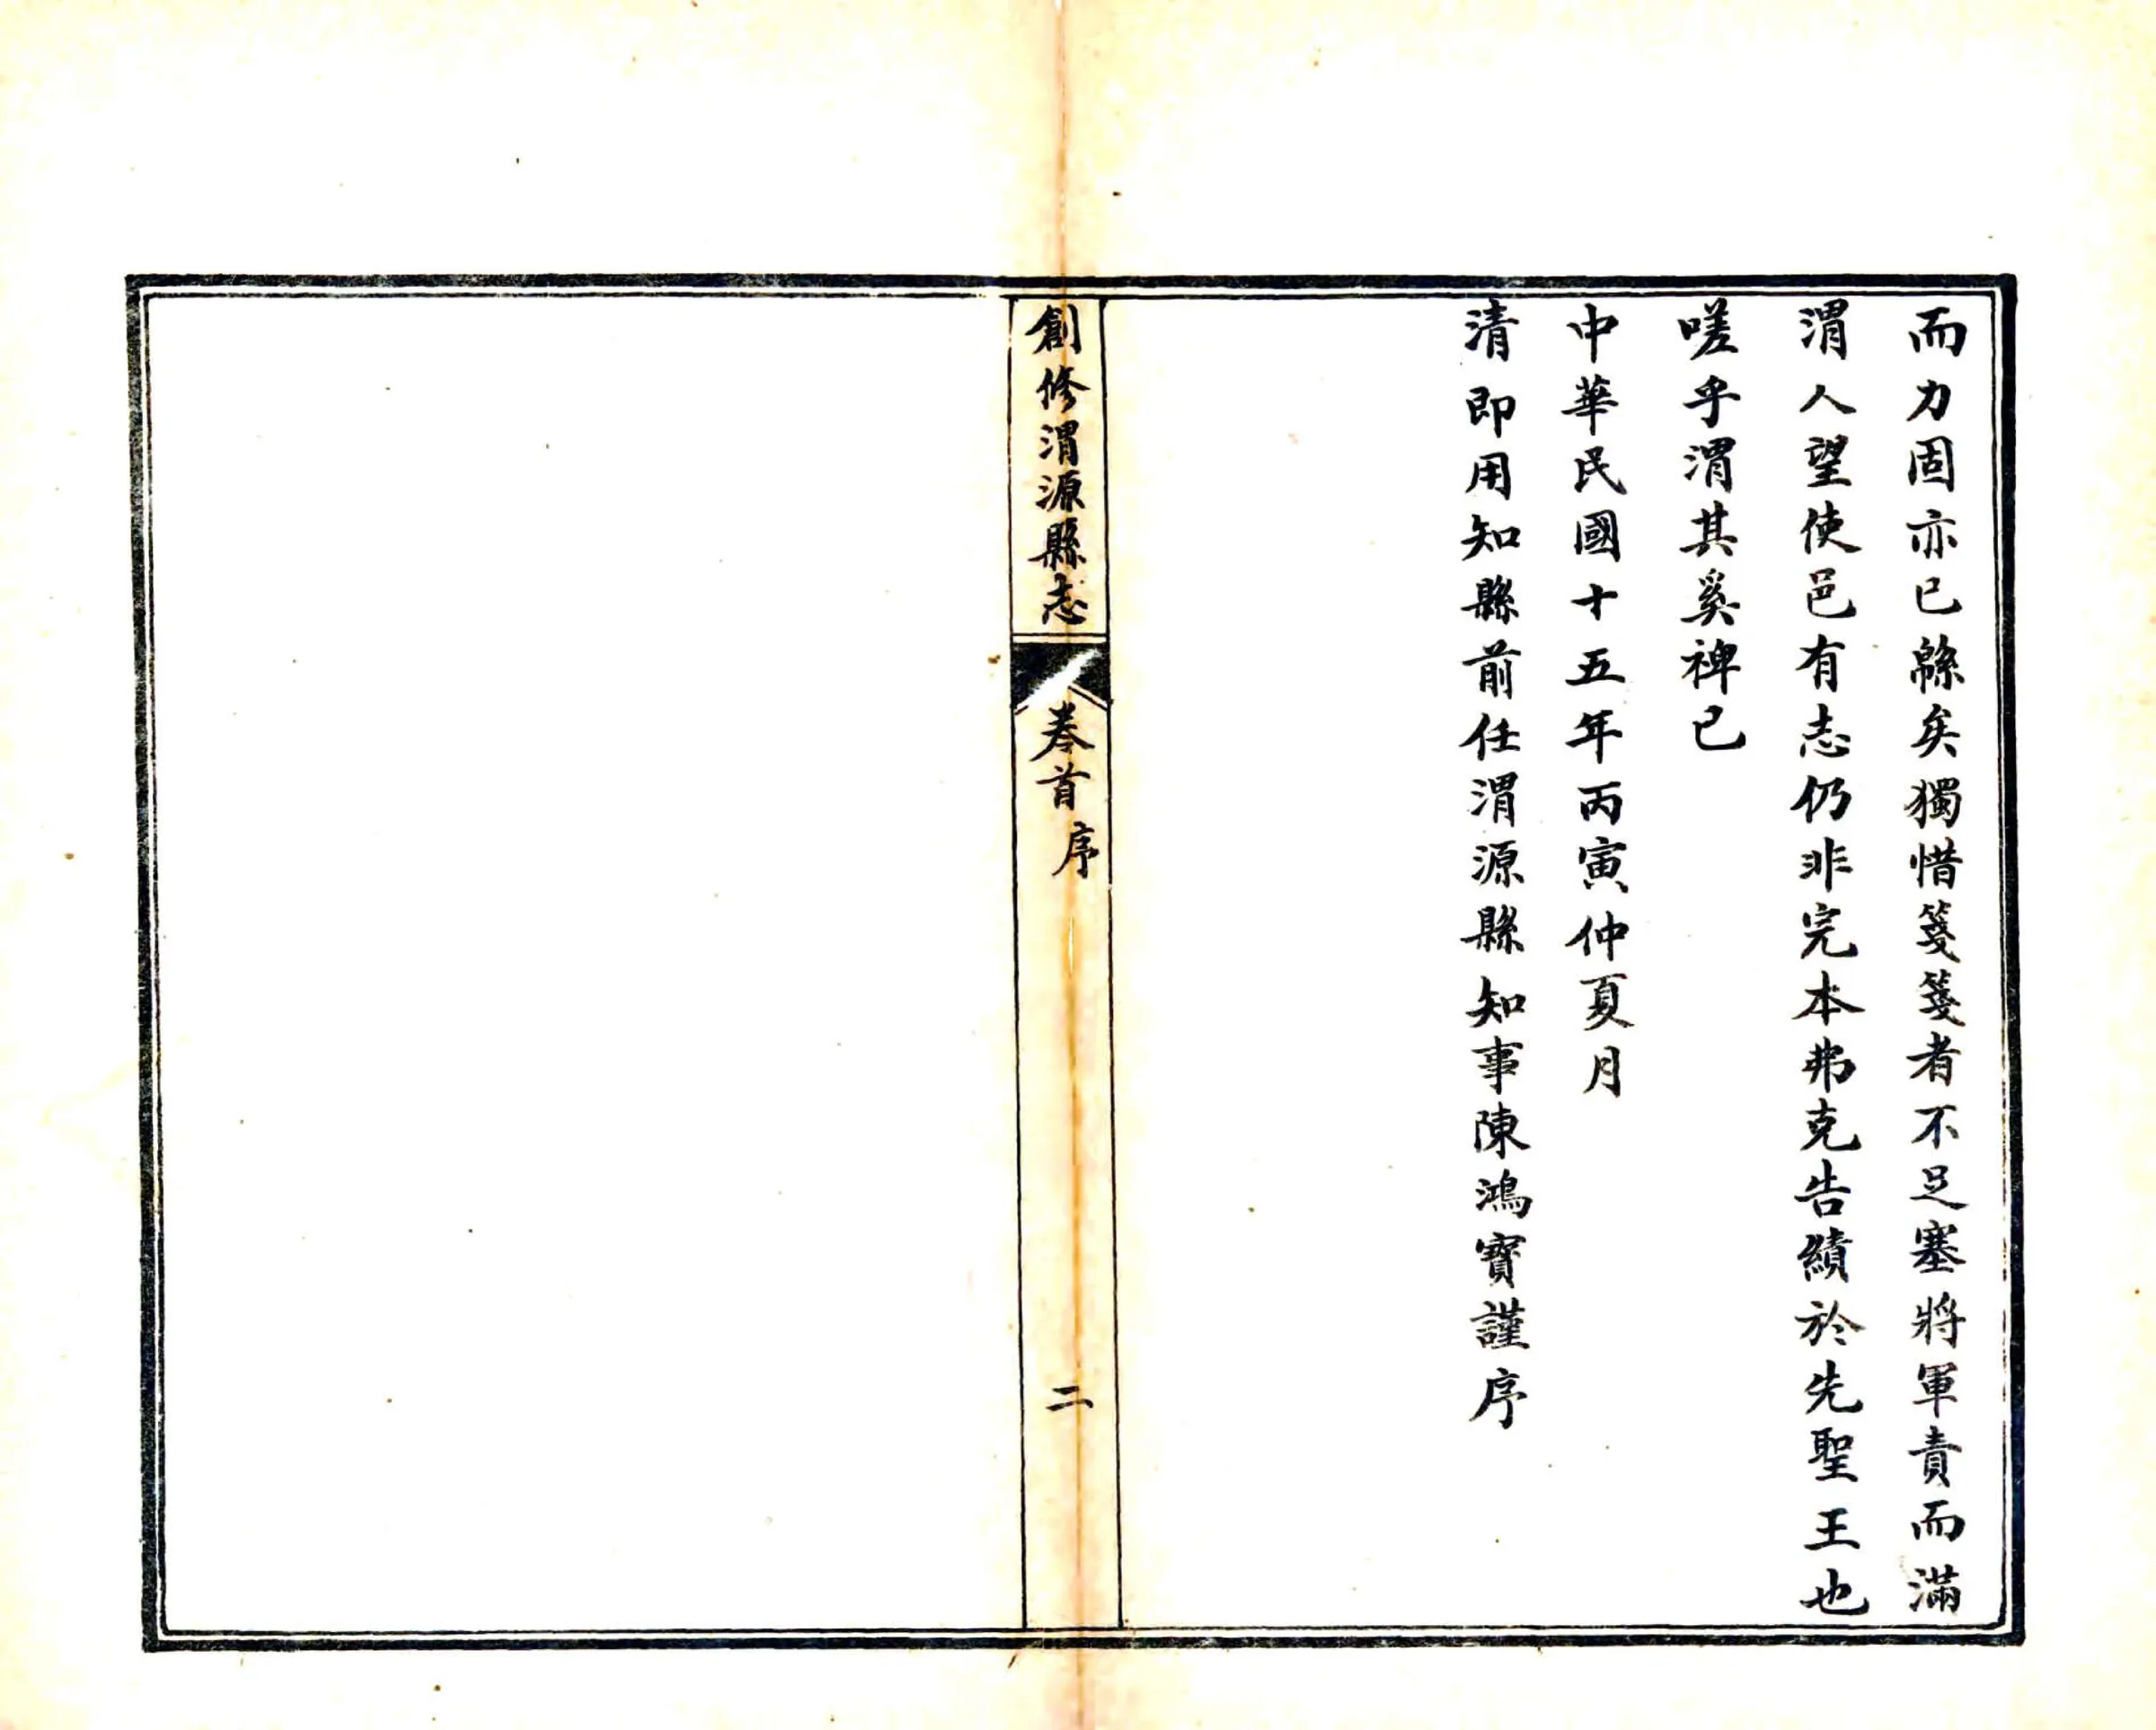 而力固亦已緜矣獨惜箋箋者不足塞將軍責而滿
渭人望使邑有志仍非完本弗克告績於先聖王也
嗟乎渭其奚裨已
中華民國十五年丙寅仲夏月
清即用知縣前任渭源縣知事陳鴻寶謹序
創修渭源縣志
卷首
序
二